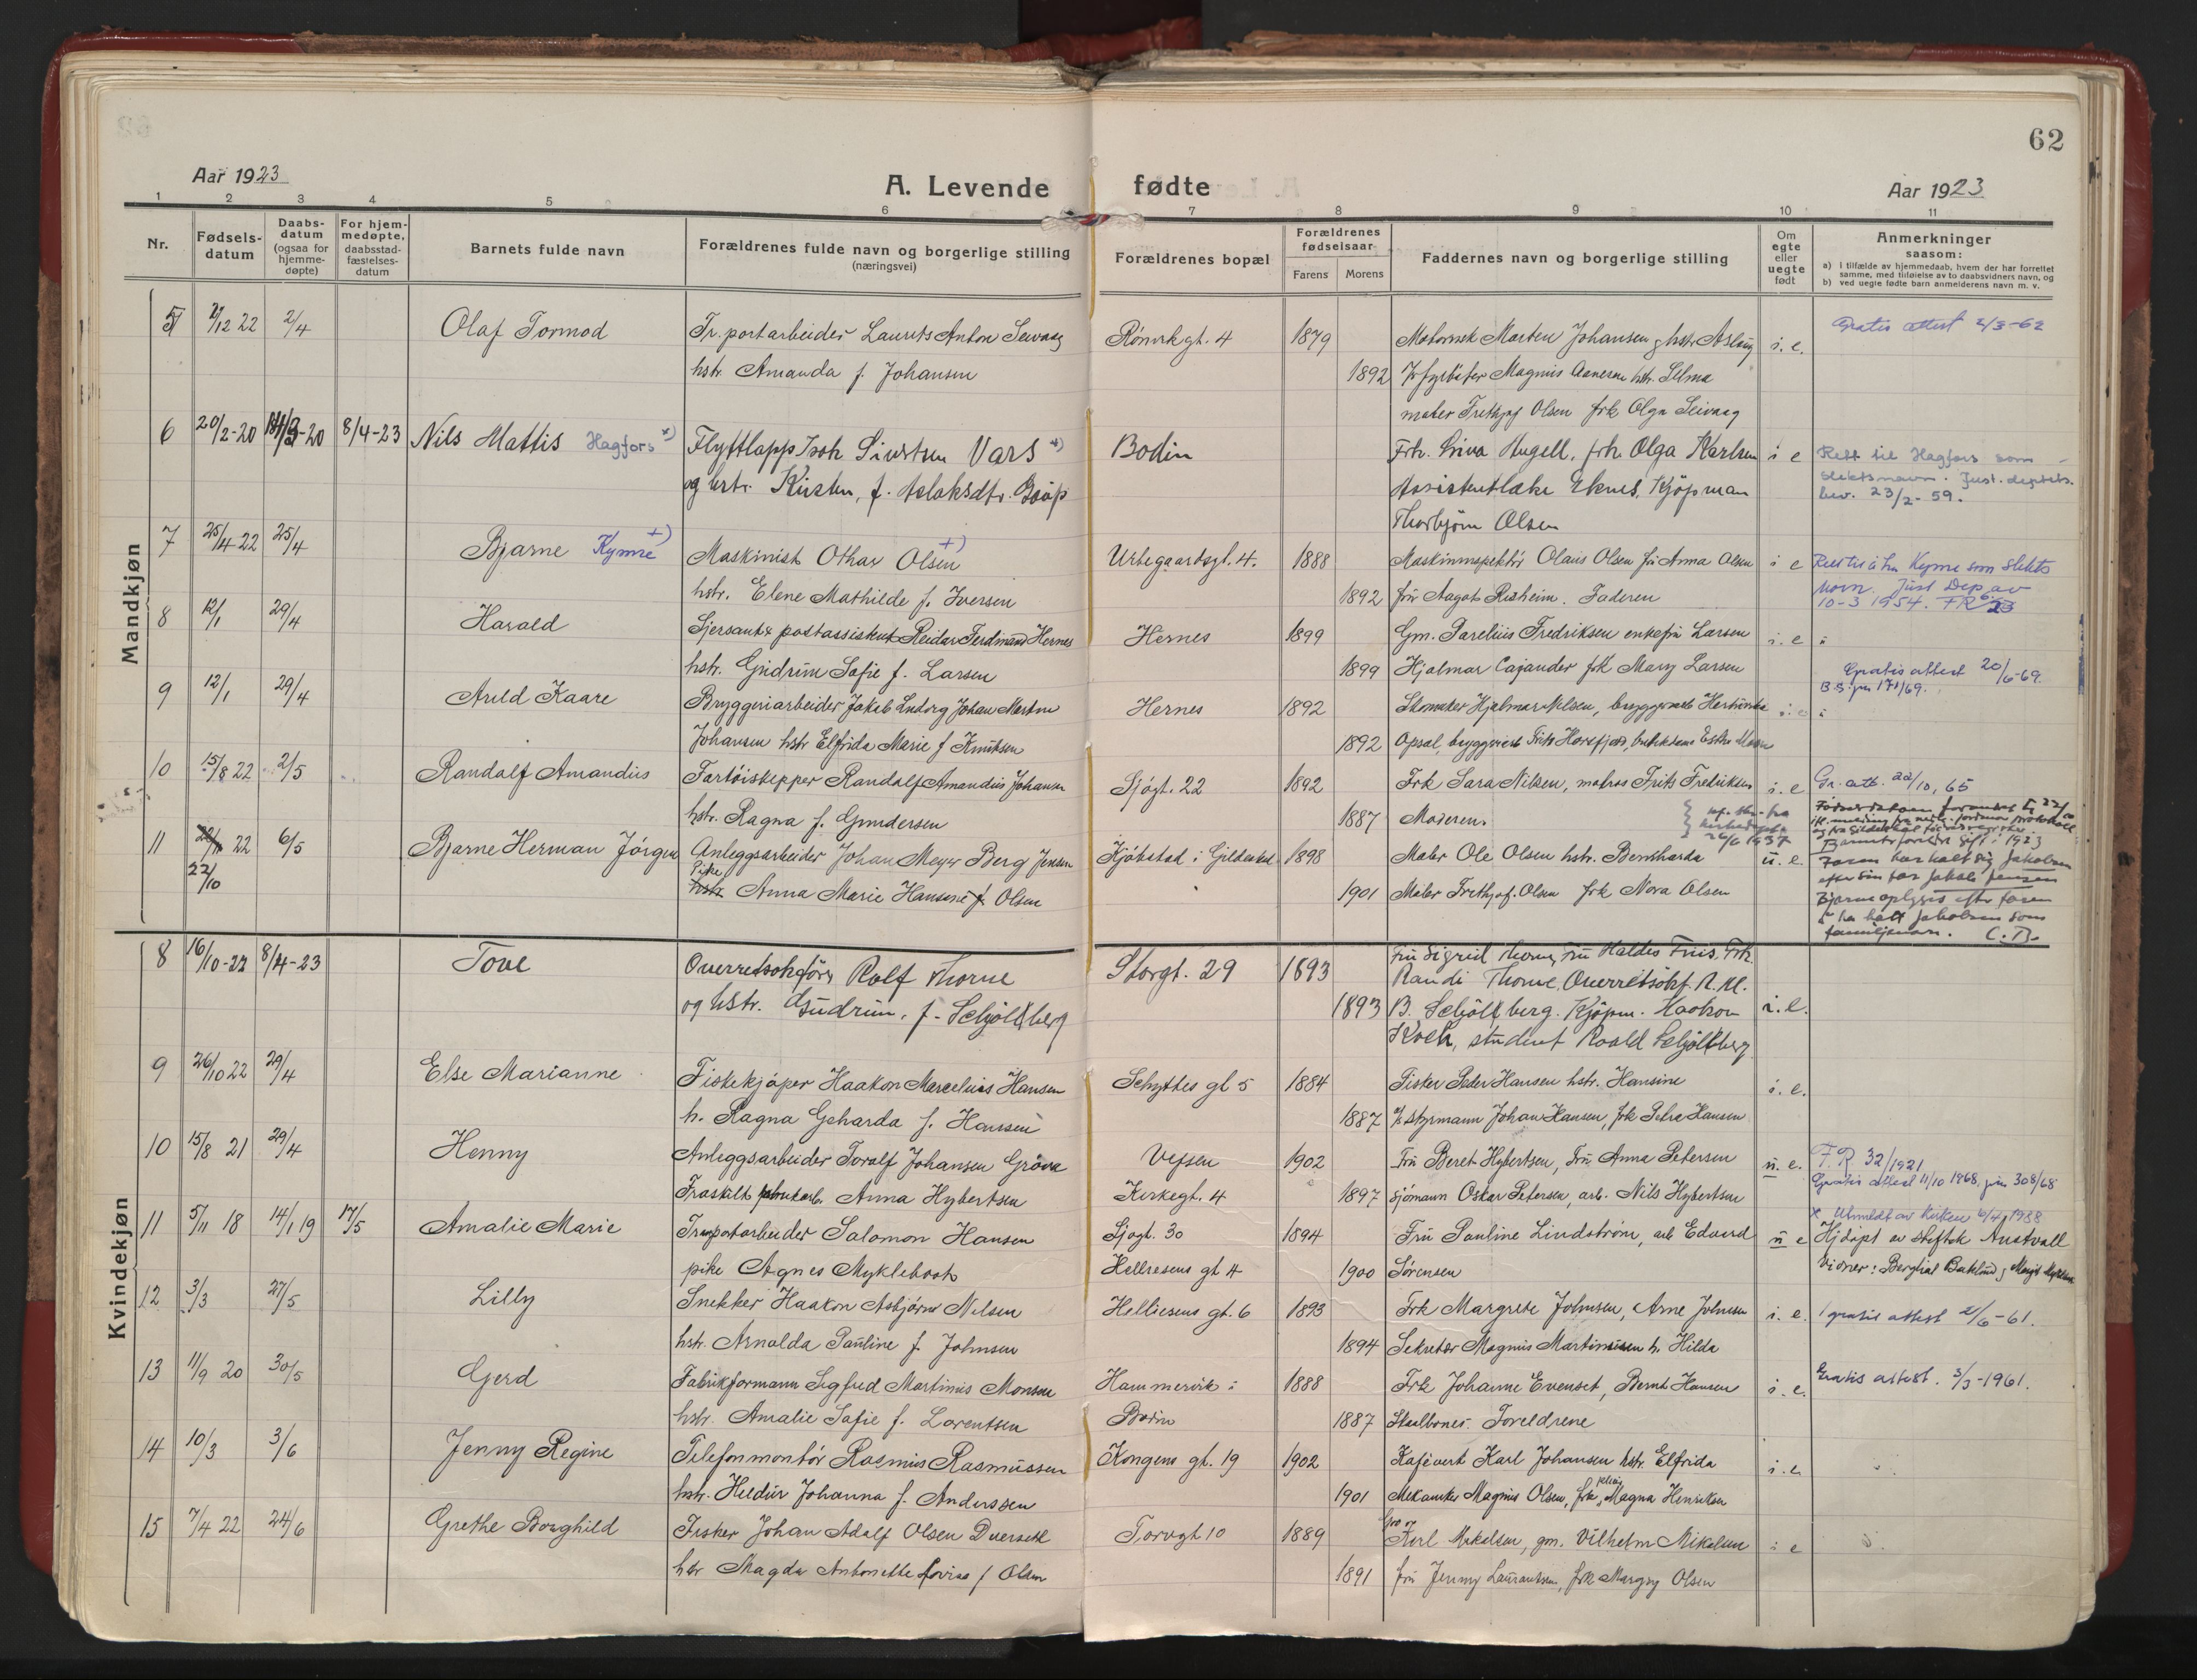 62
Aar 1923
A. Levende fødte
Aar 1923
1 2 3 4 5 6 7 8 9 10 11
Nr.
Fødsels-
datum
Daabs-
datum
(ogsaa for
hjemme-
døpte)
For hjem-
medøpte,
daabsstad-
fæstelses-
datum
Barnets fulde navn
Forældrenes fulde navn og borgerlige stilling
(næringsvei)
Forældrenes bopæl
Forældrenes
fødselsaar
Farens Morens
Faddernes navn og borgerlige stilling
Om
egte
eller
uegte
født
Anmerkninger
saasom:
a) i tilfælde av hjemmedaab, hvem der har forrettet
samme, med tilføielse av to daabsvidners navn, og
b) ved uegte fødte barn anmelderens navn m. v.
Mandkjøn
5 12 22 2/4 Olaf Tormod Tr. portarbeider Laurits Anton Seivaag 4 1879 Morten Johansen hstr. Aslaug i. e. Gratis attest 2/3-62
hstr. Amanda f. Johansen 1892 Magnus hstr. Selma
maler Frithjof Olsen frk Olga Seivaag
6 20/2-20 8/4-23 Nils Mattis Hagfors x) Flyttlapp Sivertsen Vars x) Bodin Frk. Hugell, frk. Olga Karlsen i e Rett til Hagfors som
og hstr. Kirsten, f. Aslaksdtr. Assistentlæke Eknes, Kjøpman slektsnavn. Just. deptets.
Thorbjørn Olsen brev. 23/2-59.
7 25/4 22 25/4 Bjarne Kymre +) Maskinist Othar Olsen +) Urtegaardsgt. 4. 1888 Maskininspektør Olaus Olsen fru Anna Olsen i e Kymre som slekts
hstr. Elene Mathilde f. Iversen 1892 fru Aagot Risheim. Faderen navn. Just Dep av
10-3 1954. FR
8 12/1 29/4 Harald Sjersant & postassistent Reidar Ferdinand Hernes Hernes 1899 Gm. Parelius Fredriksen enkefru Larsen i. e
hstr. Gudrun Sofie f. Larsen 1899 Hjalmar Cajander frk Mary Larsen
9 12/1 29/4 Arild Kaare Bryggeriarbeider Jakob Ludvig Johan Morten Hernes 1892 Skomaker Hjalmar Nilsen, Gratis attest 20/6-69.
Johansen hstr Elfrida Marie f Knutsen 1892 Opsal, B.S. jnr 171/69.
10 15/8 22 2/5 Randalf Amandus Fartøiskipper Randalf Amandus Johansen Sjøgt. 22 1892 Frk Sara Nilsen, matros Frits Fredriksen i. e Gr. att. 22/10, 65
hstr. Ragna f. Gundersen 1887 Moderen.
11 22 6/5 Bjarne Herman Jørgen Anleggsarbeider Johan Meyer Berg Jensen Kjøbstad i Gildeskål 1898 Maler Ole Olsen hstr. Bernharda u. e. Faren har kalt sig Jakobsen
22/10 Pike Anna Marie Hansine f. Olsen 1901 Maler Frithjof Olsen frk Nora Olsen efter sin far Jakob Jensen
Bjarne oplyses efter faren
å ha kalt Jakobsen som
familjenavn. C.B.
Kvindekjøn
8 16/10-22 8/4-23 Tove Overretssakfører Rolf Thorne Storgt. 29 1893 Fru Sigrid Thorne, Fru Haldis Friis, Frk.
og hstr. Gudrun, f. Schjøllberg Randi Thorne, Overretssakf. R. M.
1893 B. Schjøllberg. Kjøpm. Haakon i. e.
Koch, student Roald Schjøllberg
9 26/10 22 29/4 Else Marianne Fiskekjøper Haakon Marcelius Hansen Schyttes gt 5 1884 Fisker Peder Hansen hstr. Hansine i. e.
h. Ragna Geharda f. Hansen 1887 styrmann Johan Hansen, frk Hansen
10 15/8 21 29/4 Henny Anleggsarbeider Toralf Johansen Grova Vefsen 1902 Fru Beret Hybertsen, Fru Anna Petersen u. e. F. R 32/1921
Fraskilt fabrikarb. Anna Hybertsen Kirkegt. 4 1897 sjømann Oskar Petersen, arb. Nils Hybertsen Gratis attest 11/10 1968, jnr 308/68
x Utmeldt av kirken 6/4 1988
11 5/11 18 14/1 19 17/5 Amalie Marie Transportarbeider Salomon Hansen Sjøgt. 30 1894 Fru Pauline Lindstrøm, arb Edvard u e Hjdøpt av Austvoll
pike Agnes Myklebost Hellresens gt 4 1900 Sørensen Vidner:
12 3/3 27/5 Lilly Snekker Haakon Asbjørn Nilsen Helliesens gt. 6 1893 Frk Margrete Johnsen, Arne Johnsen i. e. 1 gratis attest 2/6-61.
hstr. Arnolda Pauline f. Johnsen 1894 Sekretær Magnus Martinussen h. Hilda
13 11/9 20 30/5 Gerd Fabrikformann Sigfred Martinus Monsen Hammervik i 1888 Frk Johanne Evenset, Bernt Hansen i. e. Gratis attest. 3/3-1961.
hstr. Amalie Sofie f. Lorentsen Bodin 1887 Skalbones. Foreldrene
14 10/3 3/6 Jenny Regine Telefonmontør Rasmus Rasmussen Kongens gt. 19 1902 Kafévert Karl Johansen hstr. Elfrida i. e
hstr. Hildur Johanna f. Anderssen 1901 Mekaniker Magnus Olsen, frk Magna Henriksen
15 7/4 22 24/6 Grethe Borghild Fisker Johan Adolf Olsen Torvgt 10 1889 Karl Mikalsen, gm. Vilhelm Mikalsen i e
hstr Magda Antonette Lovise f Olsen 1891 fru Jenny Lauransen, frk Margny Olsen